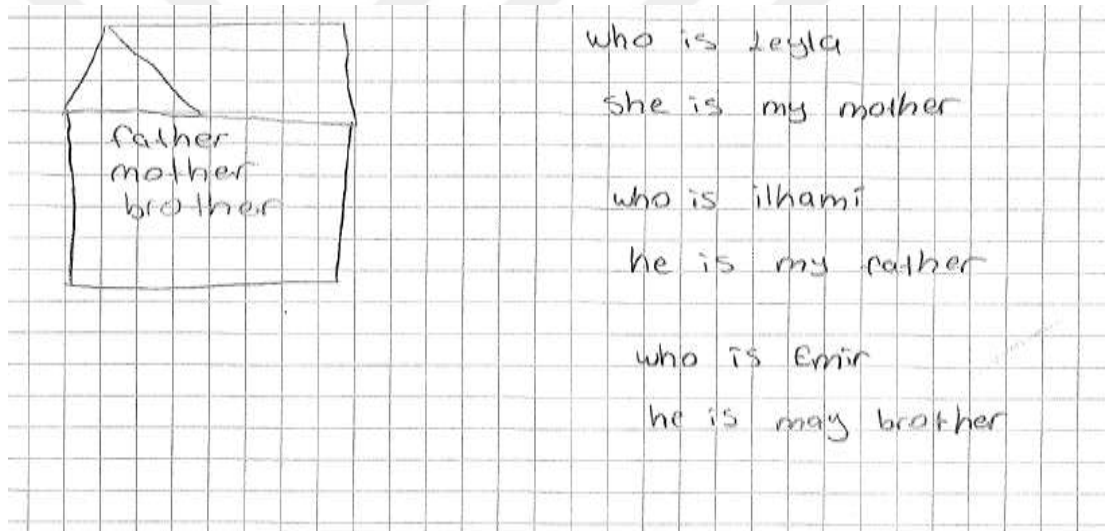 father
mother
brother
who is Leyla
she is my mother
who is ilhami
he is my father
who is Emir
he is may brother